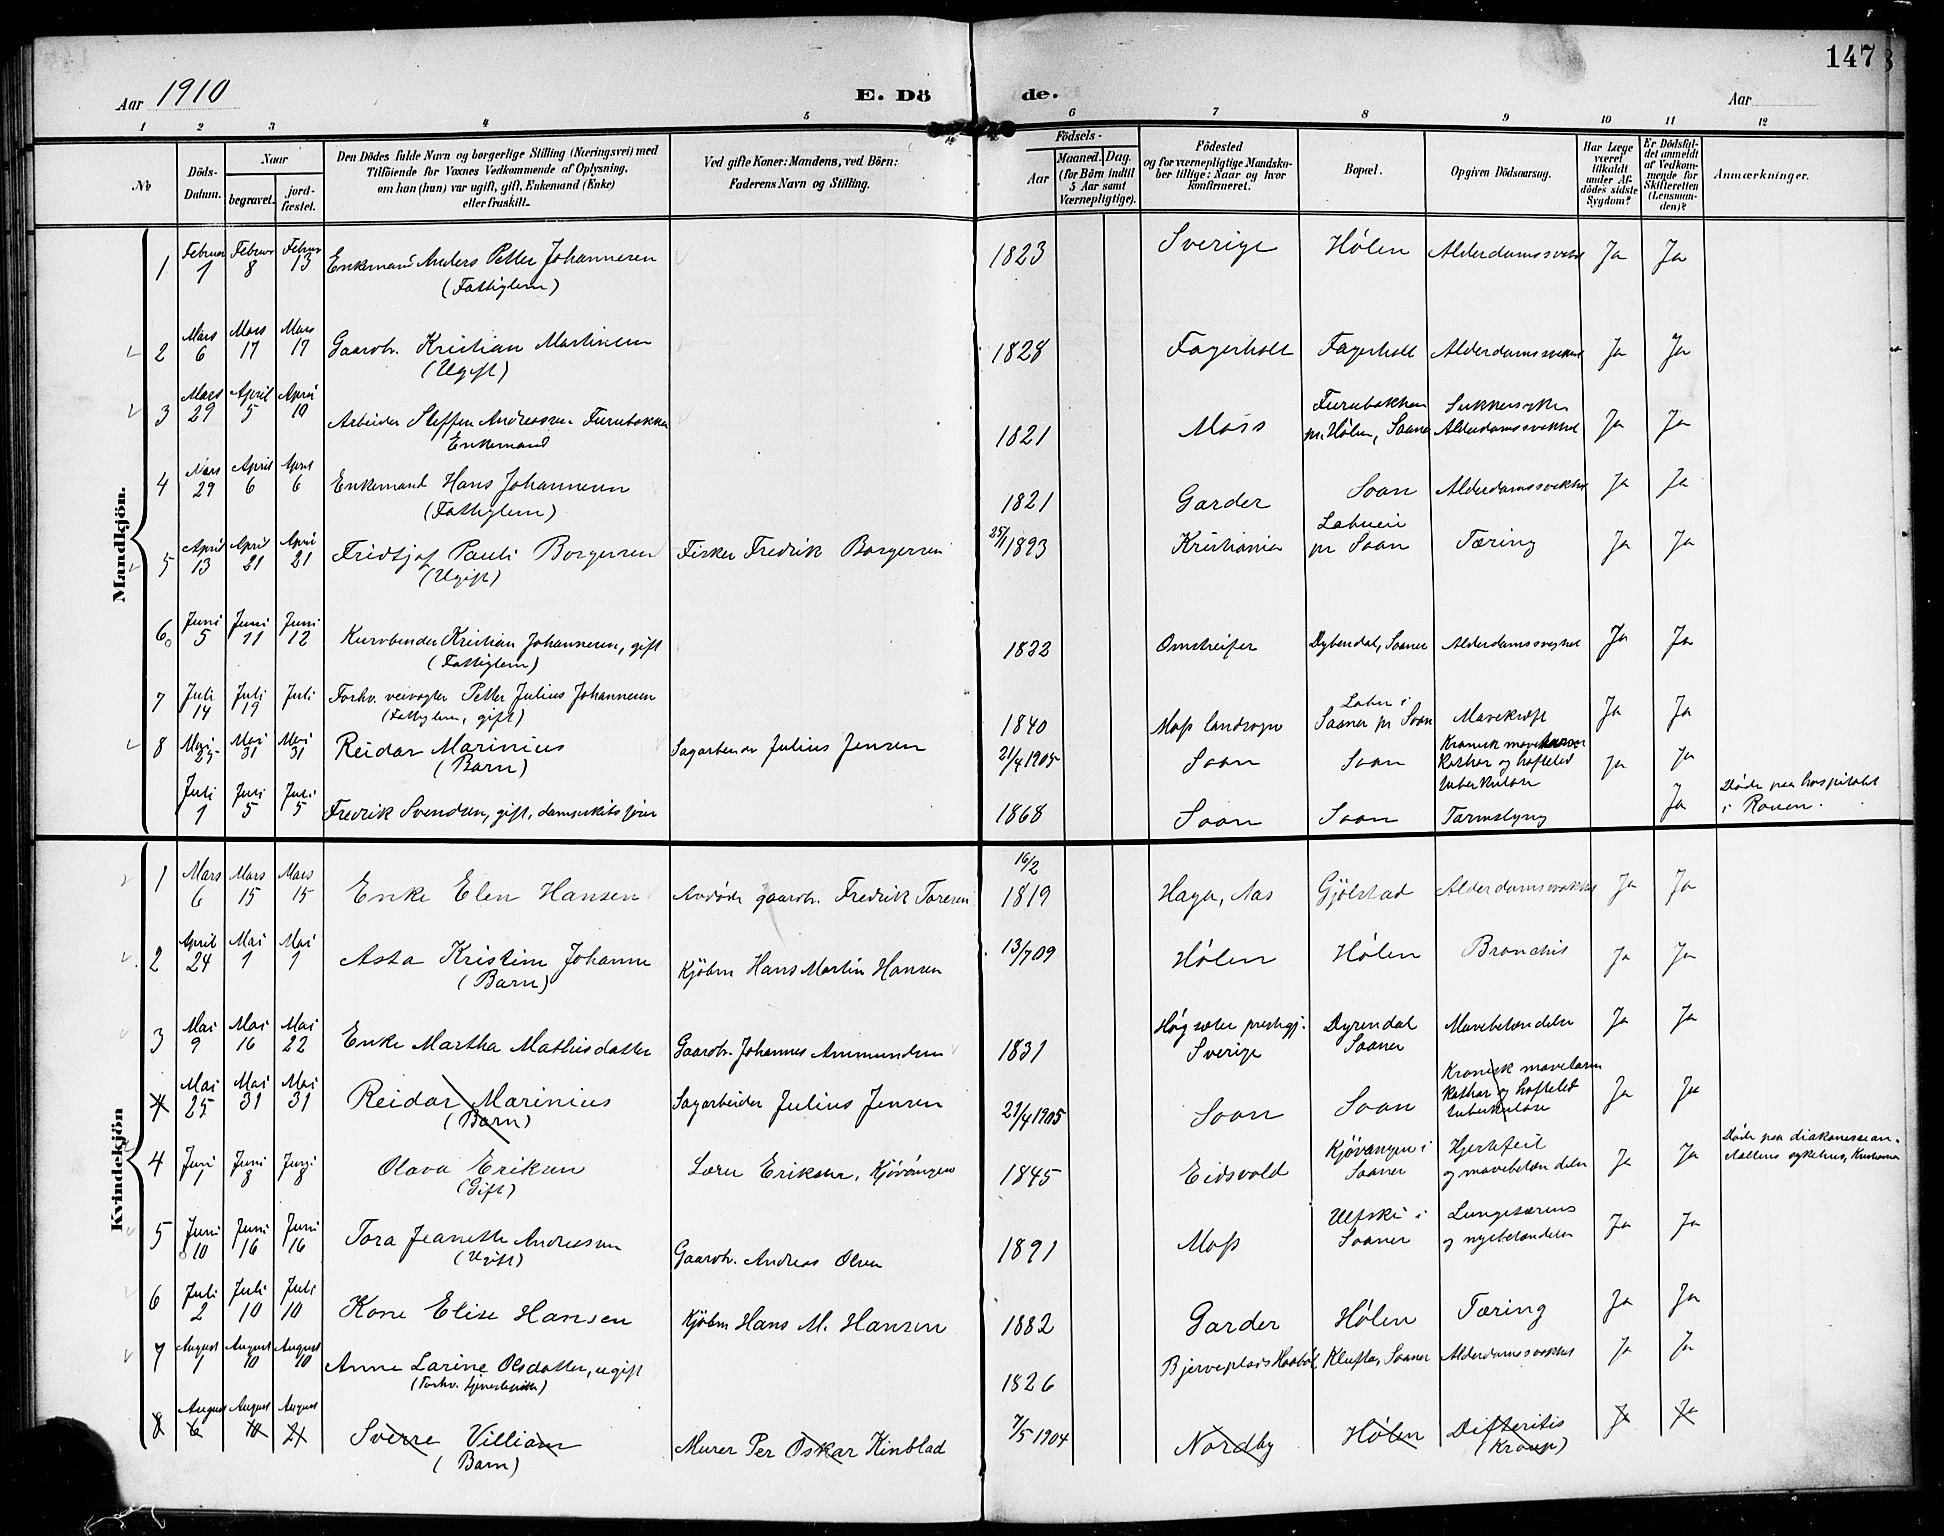 147
Aar 1910
E. Dö de.
Aar
1 2 3 4 5 6 7 8 9 10 11 12
No
Döds-Datum.
Naar
begravet.
jord-fæstet.
Den Dödes fulde Navn og borgerlige Stilling (Næringsvei) med
Tilföiende for Voxnes Vedkommende af Oplysning,
om han (hun) var ugift, gift, Enkemand (Enke)
eller fraskilt.
Ved gifte Koner: Mandens, ved Börn:
Faderens Navn og Stilling.
Födsels-
Aar
Maaned. Dag.
(for Börn indtil
5 Aar samt
Værnepligtige).
Födested
og for værnepligtige Mandska-
ber tillige: Naar og hvor
konfirmeret.
Bopæl.
Opgiven Dödsaarsag.
Har Læge
været
tilkaldt
under Af-
dödes sidste
Sygdom?
Er Dödsfal-
det anmeldt
af Vedkom-
mende for
Skifteretten
(Lensman-
den)?
Anmærkninger.
Mandkjön.
1 Februar 1 Februar 8 Februar 13 Enkemand Anders Petter Johannesen 1823 Sverige Hølen Alderdomssvekkelse Ja Ja
(Fattiglem)
2 Mars 6 Mars 17 Mars 17 Gaardbr. Kristian Martinsen 1828 Fagerholt Fagerholt Alderdomssvekkelse Ja Ja
(Ugift)
3 Mars 29 April 5 April 10 Arbeider Steffen Andreassen Furubakken 1821 Moss Furubakken Sukkersyke
Enkemand pr. Hølen, Saaner Alderdomssvekkelse Ja Ja
4 Mars 29 April 6 April 6 Enkemand Hans Johannesen 1821 Garder Soon Alderdomssvekkelse Ja Ja
(Fattiglem)
5 April 13 April 21 April 21 Fridtjof Pauli Borgersen Fisker Fredrik Borgersen 25/1 1893 Kristiania pr Soon Tæring Ja Ja
(Ugift)
6 Juni 5 Juni 11 Juni 12 Kurvbinder Kristian Johannesen, gift 1822 Omstreifer Dybendal, Saaner Alderdomssvekkelse Ja Ja
(Fattiglem)
7 Juli 14 Juli 19 Juli Forhv. veivogter Petter Julius Johannesen 1840 Moss landsogn Saaner pr Soon Mavekræft Ja Ja
(Fattiglem, gift)
8 Mai 25 Mai 31 Mai 31 Reidar Marinius Sagarbeider Julius Jensen 21/4 1905 Soon Soon Kronisk mavetarm
(Barn) kathar og hofteled tuberkulose Ja Ja
Juli 1 Juli 5 Juli 5 Fredrik Svendsen, gift, damskibsfører 1868 Soon Soon Tarmslyng Ja Døde paa hospitalet
i Rouen.
Kvindekjön
1 Mars 6 Mars 15 Mars 15 Enke Elen Hansen Avdøde gaardbr. Fredrik Toresen 16/2 1819 Haga, Aas Gjølstad Alderdomssvekkelse Ja Ja
2 April 24 Mai 1 Mai 1 Asta Kristine Johanne Kjøbm Hans Martin Hansen 13/7 09 Hølen Hølen Bronchit Ja Ja
(Barn)
3 Mai 9 Mai 16 Mai 22 Enke Martha Mathisdatter Gaardbr. Johannes Ammundsen 1831 Høgsæter prestegj. Dyrendal Mavebetændelse Ja Ja
Sverige Saaner
4 Mai 25 Mai 31 Mai 31 Reidar Marinius Sagarbeider Julius Jensen 21/4 1905 Soon Soon Kronisk mavetarm
(Barn) kathar og hofteled tuberkulose Ja Ja
4 Juni 1 Juni 8 Juni 8 Olava Eriksen Lærer Eriksen, Kjøvangen 1845 Eidsvold Kjøvangen i Hjertefeil Ja Ja Døde paa diakonissean-
(Gift) Saaner og mavebetændelse staltens sykehus, Kristiania
5 Juni 10 Juni 16 Juni 16 Tora Jeanette Andreassen Gaardbr. Andreas Olsen 1891 Moss Ulfski i Saaner og nyrebetændelse Ja Ja
(Ugift)
6 Juli 2 Juli 10 Juli 10 Kone Elise Hansen Kjøbm Hans M. Hansen 1882 Garder Hølen Tæring Ja Ja
7 August 1 August 10 August 10 Anne Larine Olsdatter, ugift 1826 Kluften, Saaner Alderdomssvekkelse Ja Ja
(Forhv. tjenestepike)
8 August 6 August 10 August 21 Sverre Villiam Murer Per Oskar Kinblad 7/5 1904 Nordby Hølen Difteritis Ja Ja
(Barn) (Kroup)